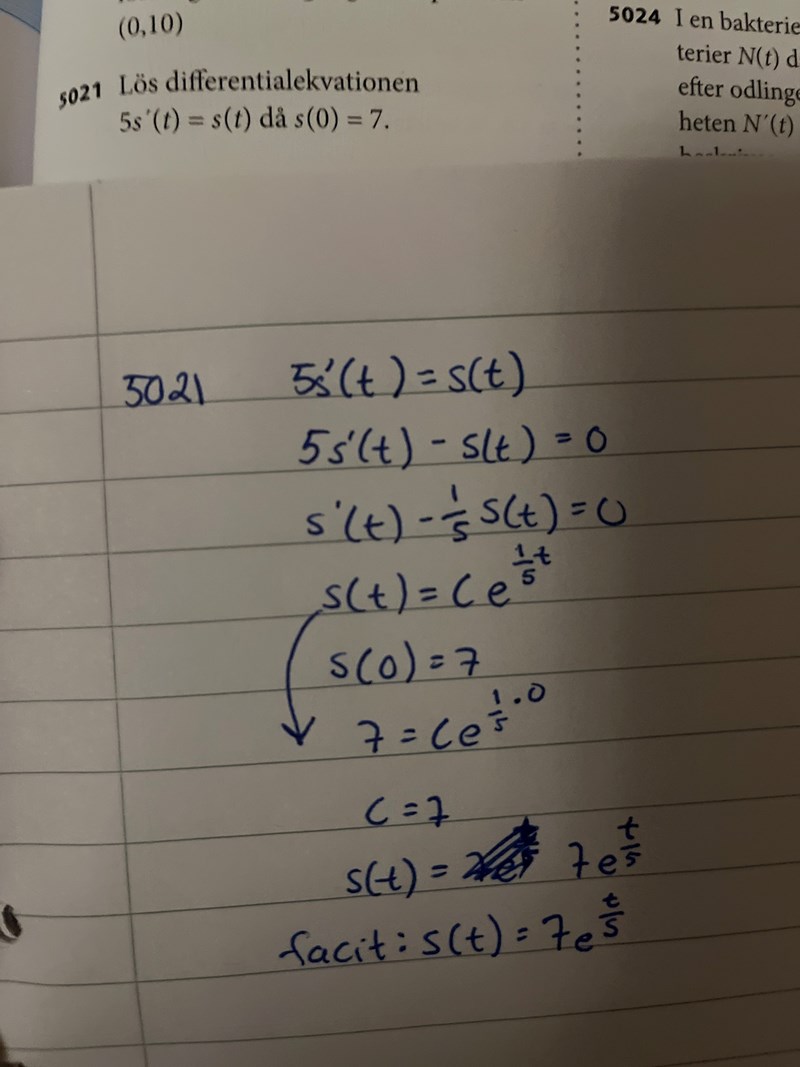 (0,10)
5021 Lös differentialekvationen
5s′(t) = s(t) då s(0) = 7.
5024 I en bakterie
terier N(t) d
efter odlinge
heten N′(t)
5021 5s'(t) = s(t)
5s'(t) - s(t) = 0
s'(t) - 1/5 s(t) = 0
s(t) = Ce^(1/5 t)
s(0) = 7
7 = Ce^(1/5 · 0)
C = 7
s(t) = 7e^(t/5)
facit: s(t) = 7e^(t/5)